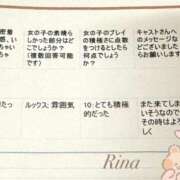 密着
感、い
ちゃい
ちゃ
女の子の素晴ら
しかった部分はど
こでしょうか?
(複数回答可能で
す)
女の子のプレイ
の積極さに点数
をつけるとしたら
何点でしょう
か?
キャストさんへ
のメッセージな
どございました
らお願いします。
たっ
ルックス; 雰囲気
10:とても積極
的だった
また来てしま
いそうなので
その時はよろ
し
Rina